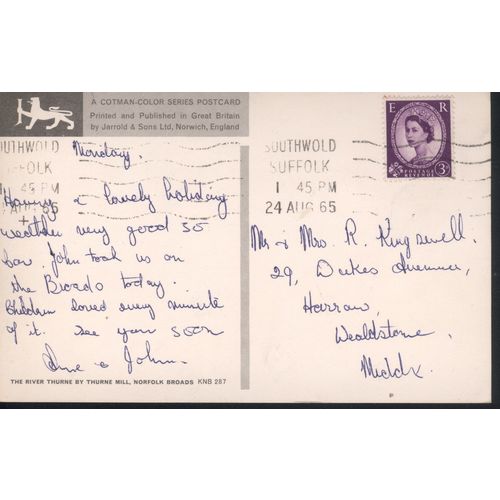 A COTMAN-COLOR SERIES POSTCARD
Printed and Published in Great Britain
by Jarrold & Sons Ltd, Norwich, England
Monday.
Having a lovely holiday
weather very good so
far. John took us on
the Broads today.
Children loved every minute
of it. See you soon
& John.
THE RIVER THURNE BY THURNE MILL, NORFOLK BROADS KNB 287
OUTHWOLD
FOLK
45 PM
AUG 65
SOUTHWOLD
SUFFOLK
1 45 PM
24 AUG 65
E R
POSTAGE
REVENUE
3D
Mr & Mrs. R. Kingswell.
29, Dukes Avenue,
Harrow,
Wealdstone,
Middx.